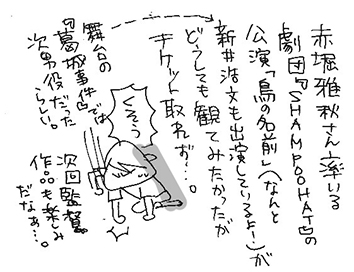 赤堀雅秋さん率いる
劇団『SHAMPOO HAT』の
公演「鳥の名前」(なんと
新井浩文も出演しているよー!)が
どうしても観てみたかったが
チケット取れず…。
くそう
舞台の
『葛城事件』では
次男役だった
らしい。
次回監督
作品も楽しみ
だなぁ…。